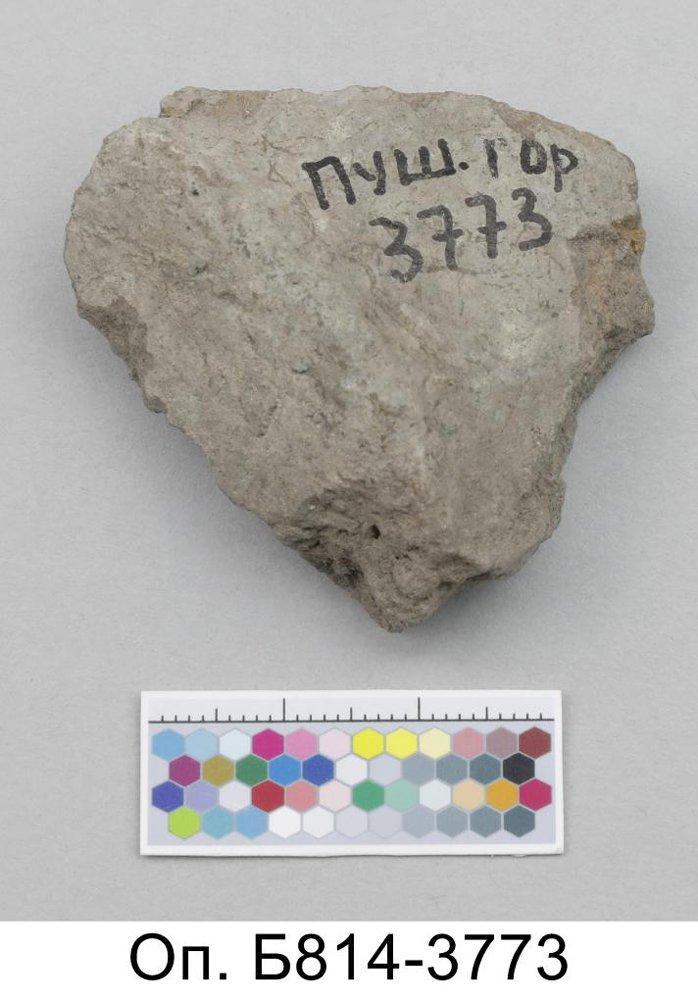 ПУШ. ГОР
3773
Оп. Б814-3773